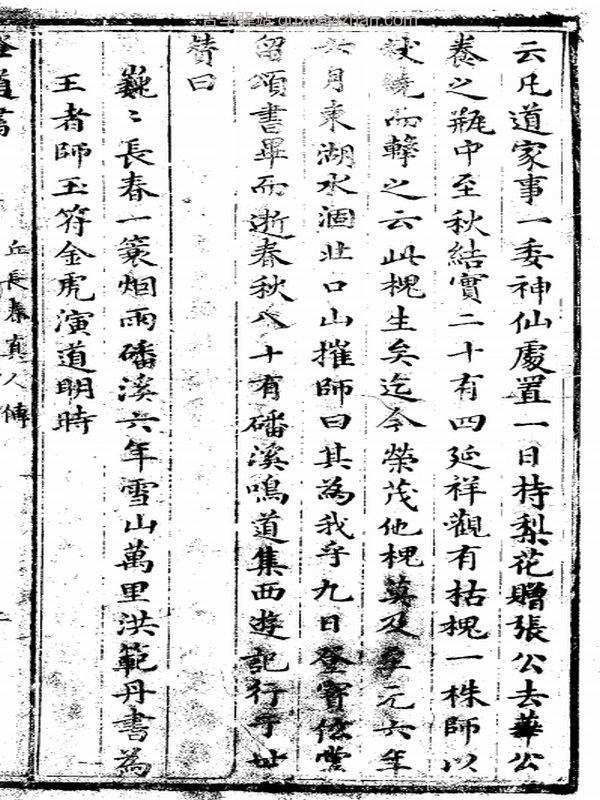 云凡道家事一委神仙處置一日持梨花贈張公去華公
養之瓶中至秋結實二十有四延祥觀有枯槐一株師以
杖繞而擊之云此槐生矣迄今榮茂他槐莫及 元六年
六月東湖水涸北口山摧師曰其為我乎九日登寶 堂
留頌書畢而逝春秋八十有磻溪鳴道集西遊記行于世
贊曰
巍〻長春一簑烟雨磻溪六年雪山萬里洪範丹書為
王者師玉符金虎演道明時
丘長春真人傳